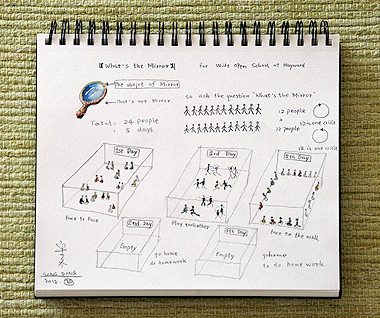 【What's the Mirror】 for Wide Open School at Hayward
The object of Mirror
so ask the question "What's the Mirror"
That's not Mirror
12 people
12 is one circle
Total: 24 people
5 days
12 people
12 is one circle
1st Day
3rd Day
5th Day
face to face
Play eachother
face to the wall
2nd Day
4th Day
Empty
go home
do homework
Empty
gohome
to do home work
Song Dong
2012